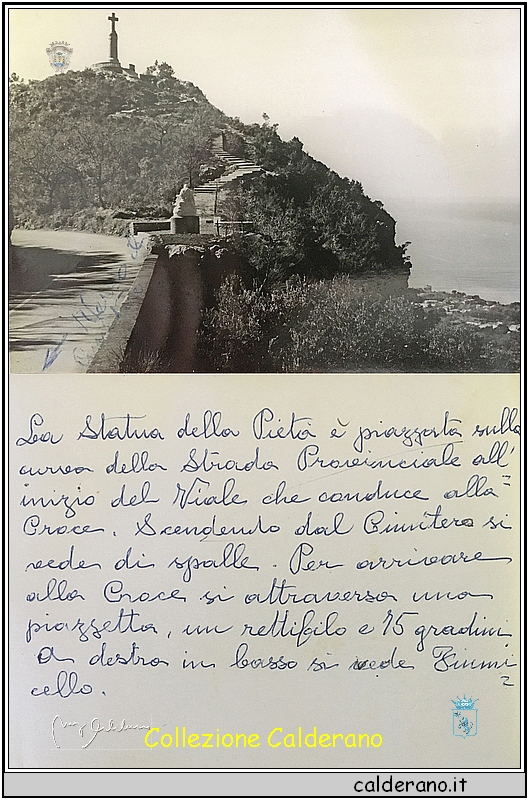 La Statua della Pietà è piazzata sulla
curva della Strada Provinciale all'
inizio del Viale che conduce alla =
Croce. Scendendo dal Cimitero si
vede di spalle. Per arrivare
alla Croce si attraversa una
piazzetta, un rettifilo e 75 gradini
A destra in basso si vede Fiumi =
cello.
Collezione Calderano
calderano.it